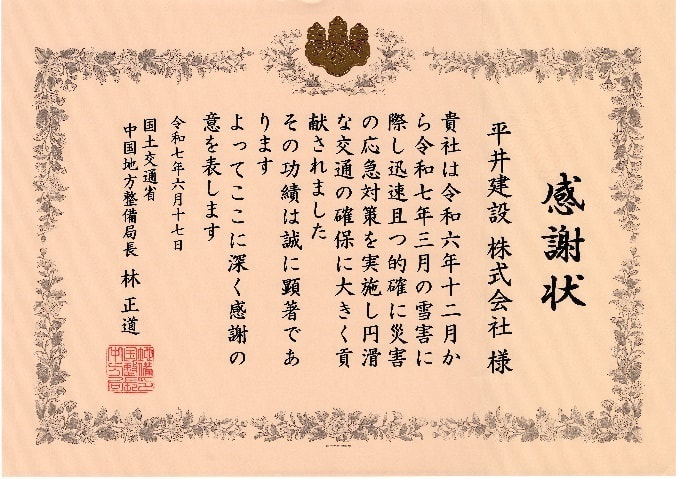 感謝状
平井建設 株式会社 様
貴社は令和六年十二月か
ら令和七年三月の雪害に
際し迅速且つ的確に災害
の応急対策を実施し円滑
な交通の確保に大きく貢
献されました
その功績は誠に顕著であ
ります
よってここに深く感謝の
意を表します
令和七年六月十七日
国土交通省
中国地方整備局長 林 正道